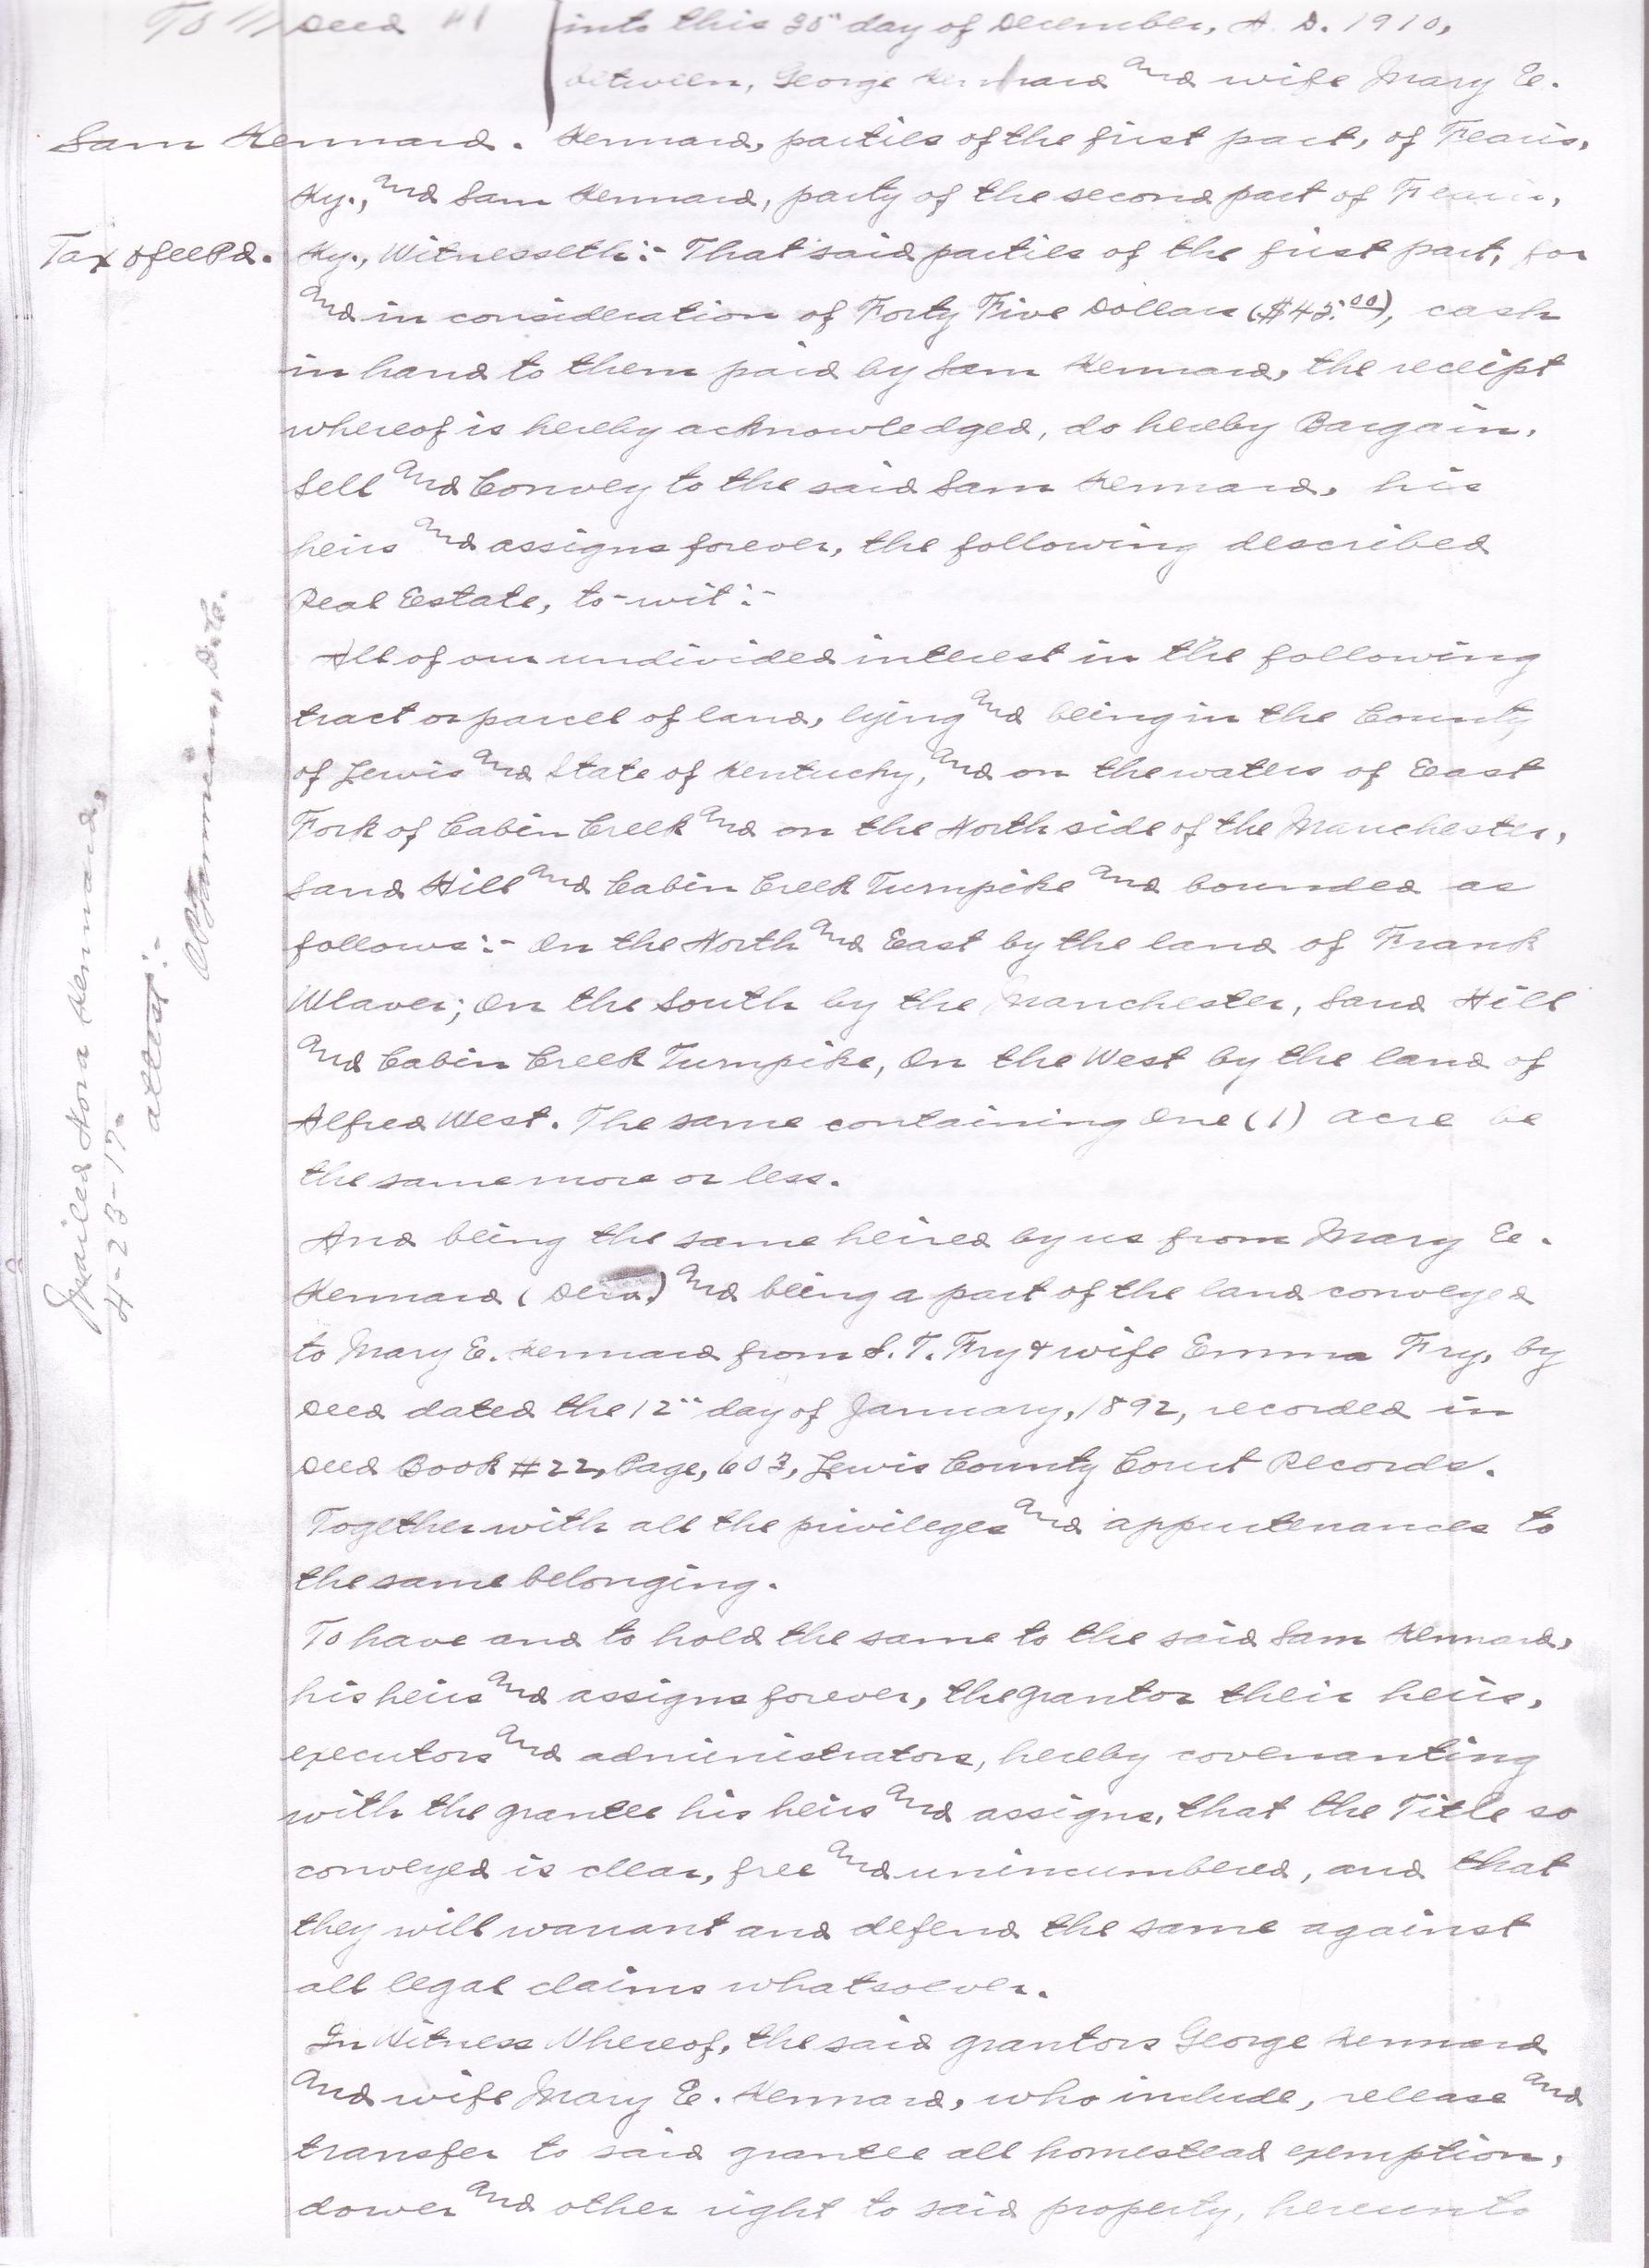 To // Deed
into this 30" day of December, A. D. 1910,
between, George Kennard and wife Mary E.
Sam Kennard. Kennard, parties of the first part, of Fearis,
Ky., and Sam Kennard, party of the second part of Fearis,
Tax & fee Pd. Ky., Witnesseth:- That said parties of the first part, for
and in consideration of Forty Five Dollars ($45.00), cash
in hand to them paid by Sam Kennard, the receipt
whereof is hereby acknowledged, do hereby Bargain,
Sell and Convey to the said Sam Kennard, his
heirs and assigns forever, the following described
Real Estate, to-wit:-
All of our undivided interest in the following
tract or parcel of land, lying and being in the County
of Lewis and State of Kentucky, and on the waters of East
Fork of Cabin Creek and on the North side of the Manchester,
Sand Hill and Cabin Creek Turnpike and bounded as
follows:- On the North and East by the land of Frank
Weaver; On the South by the Manchester, Sand Hill
and Cabin Creek Turnpike, On the West by the land of
Alfred West. The same containing One (1) acre be
the same more or less.
And being the same heired by us from Mary E.
Kennard ( ) and being a part of the land conveyed
to Mary E. Kennard from S. T. Fry & wife Emma Fry, by
Deed dated the 12" day of January, 1892, recorded in
Deed Book #22, Page, 603, Lewis County Court Records.
Together with all the privileges and appurtenances to
the same belonging.
To have and to hold the same to the said Sam Kennard,
his heirs and assigns forever, the grantor their heirs,
executors and administrators, hereby covenanting
with the grantee his heirs and assigns, that the Title so
conveyed is clear, free and unincumbered, and that
they will warrant and defend the same against
all legal claims whatsoever.
In Witness Whereof, the said grantors George Kennard
and wife Mary E. Kennard, who include, release and
transfer to said grantee all homestead exemption,
dower and other right to said property, hereunto
Mailed Nora Kennard,
4-23-17.
attest:-
D.C.